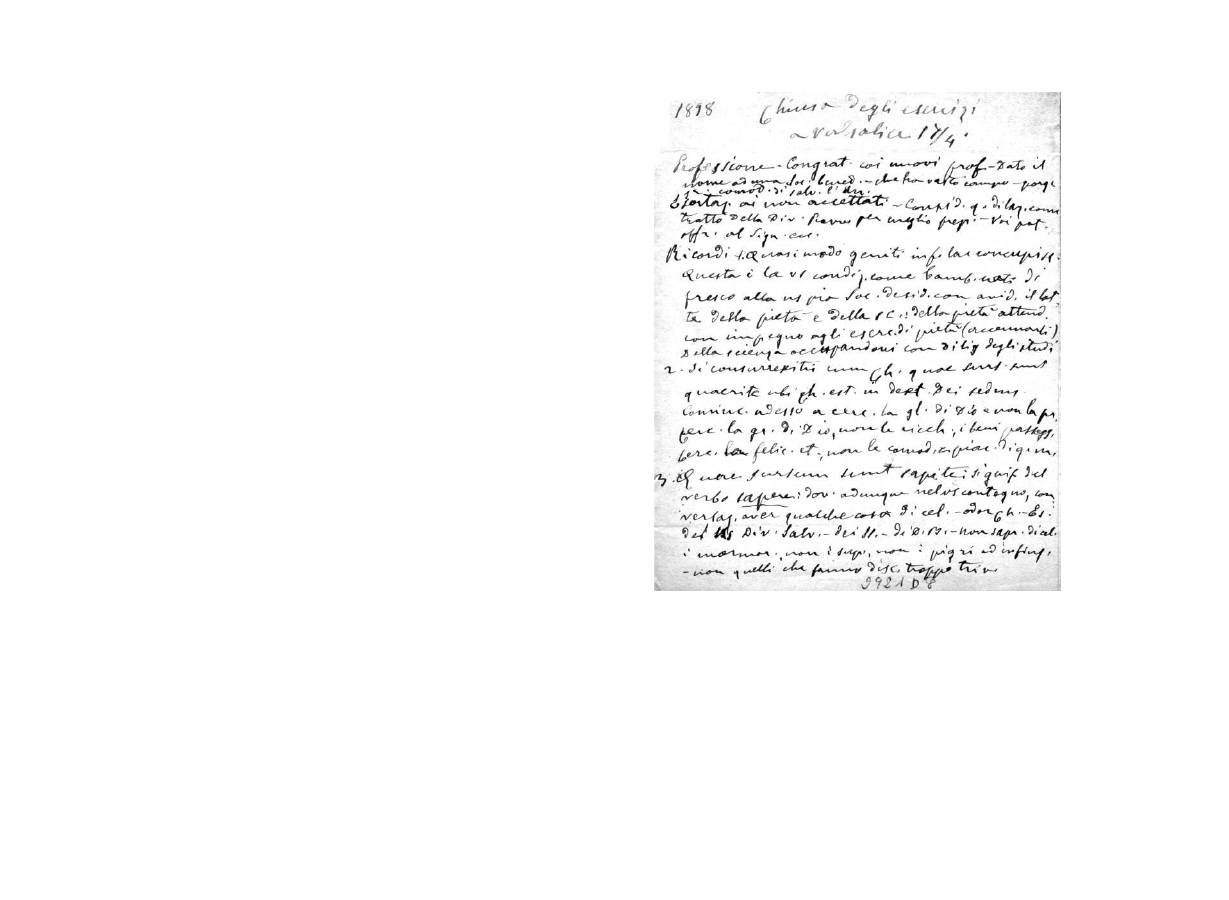 1898 Chiusa degli esercizi
a Valsalice 17/4.
Professione - Congrat. coi nuovi prof - Dato il
nome ad una Soc. bened. - che ha vasto campo - porge
comod. di salv. l'an.
Esortaz. ai non accettati - Consid. q. dilaz. come
tratto della Div. Provv. per meglio prep. - Voi pot.
offr. al Sign. ecc.
Ricordi 1. Quasi modo geniti inf. lac concupisc.
Questa è la vs condiz. come bamb. nati di
fresco alla ns pia Soc. desid. con avid. il lat
te della pietà e della sc.: della pietà attend.
con impegno agli eserc. di pietà (accennarli)
Della scienza occupandovi con dilig degli studi
2. Si consurrexistis cum Ch. quae surs. sunt
quaerite ubi Ch. est. in dext. Dei sedens.
Cominc. adesso a cerc. la gl. di Dio e non la pr.
cerc. la gr. di Dio, non le ricch., i beni passegg.
cerc. la felic. et., non le comod., i piac. di q. m.
3. Quae sursum sunt sapite: signif del
verbo sapere: dov. adunque nel vs contegno, con
versaz. aver qualche cosa di cel. - odor Ch. - Es.
del Div. Salv. - dei SS. - di D. B. - non sapr. di cel.
i mormor., non i sup., non i pigri ed infing.
- non quelli che fanno disc. troppo triv.
9921 D 8